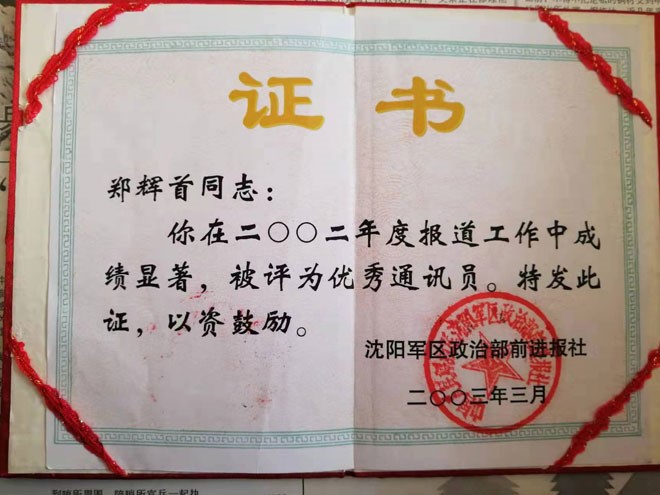 证书
郑辉首同志：
你在二〇〇二年度报道工作中成
绩显著，被评为优秀通讯员。特发此
证，以资鼓励。
沈阳军区政治部前进报社
二〇〇三年三月